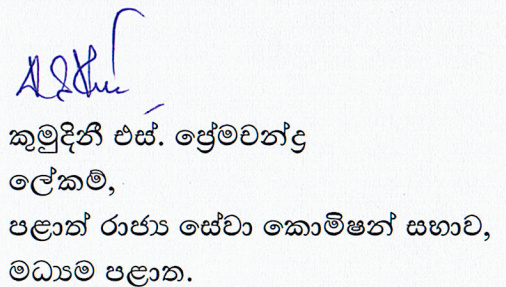 කුමුදිනී එස්. ප්‍රේමචන්ද්‍ර
ලේකම්,
පළාත් රාජ්‍ය සේවා කොමිෂන් සභාව,
මධ්‍යම පළාත.